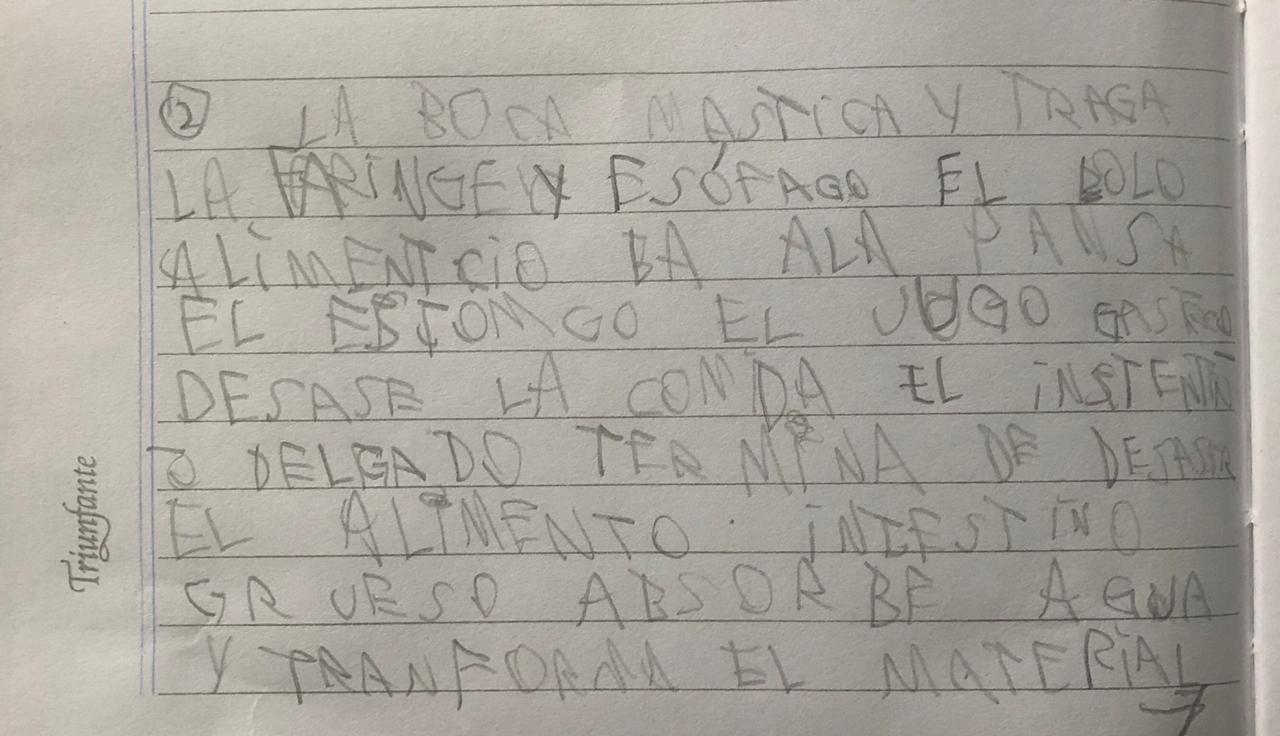 ② LA BOCA MASTICA Y TRAGA
LA FARINGE Y ESÓFAGO EL BOLO
ALIMENTCIO BA ALA PANSA
EL ESTOMGO EL JUGO GASTRICO
DESASE LA COMIDA EL INSTENTIN
O DELGADO TERMINA DE DESASER
EL ALIMENTO. INTESTINO
GRUESO ABSORBE AGUA
Y TRANFORMA EL MATERIAL
Triunfante